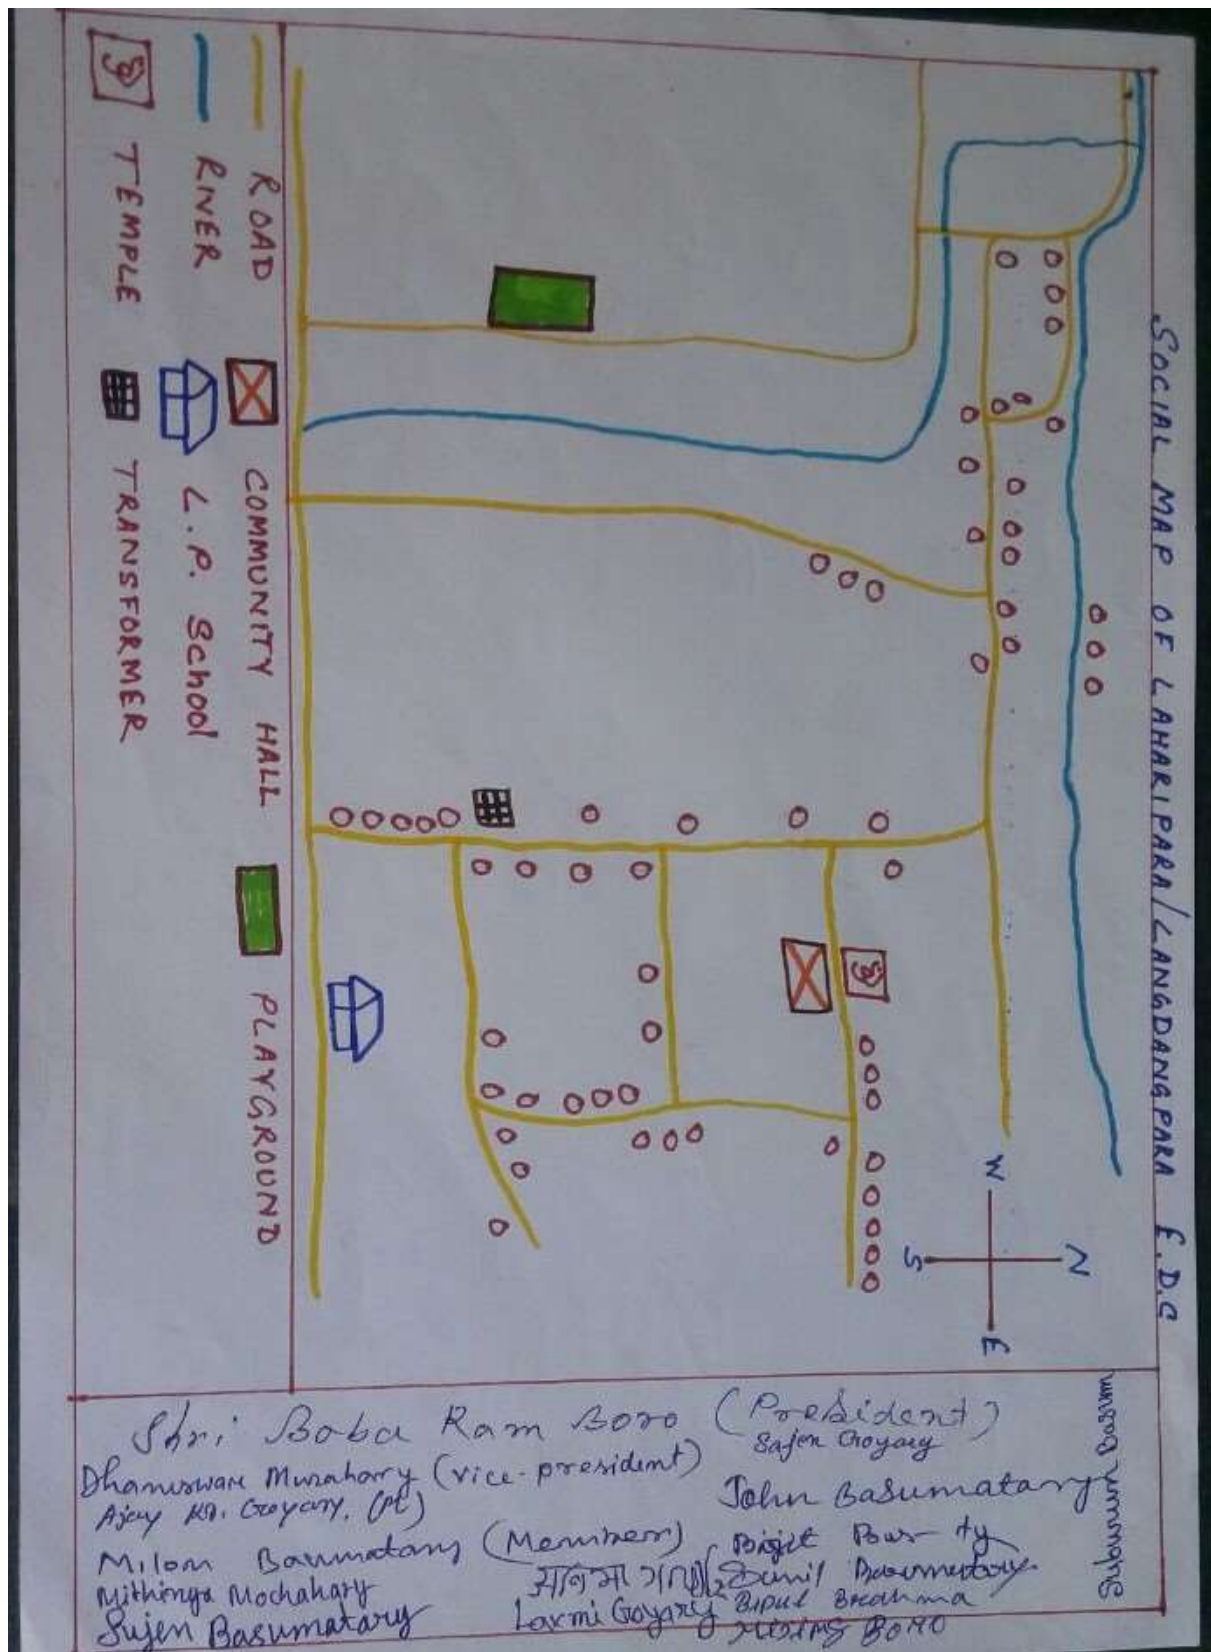 SOCIAL MAP OF LAHARIPARA/LANGDANGPARA E.D.C
N
W
E
S
ROAD
RIVER
TEMPLE
COMMUNITY HALL
L.P. School
TRANSFORMER
PLAYGROUND
Shri Boba Ram Boro (President)
Sajen Goyary
Dhaneswar Mushahary (vice-president)
Ajay Kr. Goyary.
John Basumatary
Milon Basumatary (Member)
Mithinga Mochahary
Sunil Basumatary
Laxmi Goyary
Bipul Brahma
Sujen Basumatary
BORO